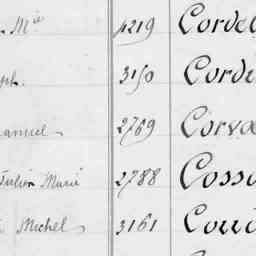 Mie 4219 Corde
ph. 3150 Corde
anuel 2769 Corva
Julien Marie 2788 Coss
Michel 3161 Cou